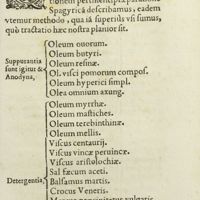 Spagyricâ describamus, eadem
vtemur methodo, qua iá superiùs vsi sumus,
quò tractatio hæc nostra planior sit.
Suppurantia sunt igitur & Anodyna,
Oleum ouorum.
Oleum butyri.
Oleum resinæ.
Ol. visci pomorum compos.
Oleum hyperici simpl.
Olea omnium axung.
Detergentia,
Oleum myrrhæ.
Oleum mastiches.
Oleum terebinthinæ.
Oleum mellis.
Viscus centaurij.
Viscus vincæ peruincæ.
Viscus aristolochiæ.
Sal fæcum aceti.
Balsamus martis.
Crocus Veneris.